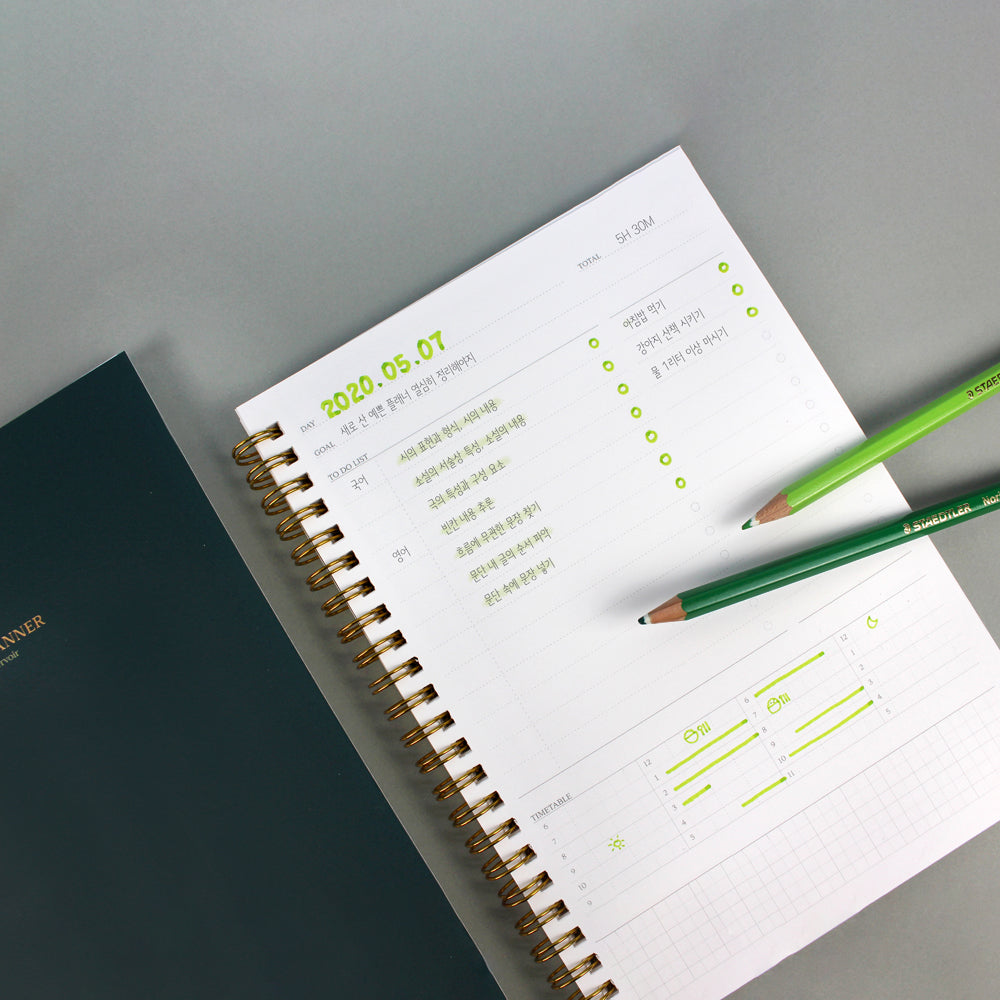 ANNER
rvoir
DAY 2020.05.07
TOTAL 5H 30M
GOAL 새로 산 예쁜 플래너 열심히 정리해야지
TO DO LIST
국어 시의 표현과 형식, 시의 내용
소설의 서술상 특성, 소설의 내용
극의 특성과 구성 요소
빈칸 내용 추론
영어 흐름에 무관한 문장 찾기
문단 내 글의 순서 파악
문단 속에 문장 넣기
아침밥 먹기
강아지 산책 시키기
물 1리터 이상 마시기
STAEDTLER
STAEDTLER Nor
TIMETABLE
6
7
8
9
10
9
12
1
2
3
4
5
6
7
8
9
10
11
12
1
2
3
4
5